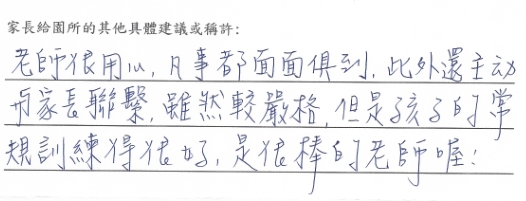 家長給園所的其他具體建議或稱許：
老師很用心，凡事都面面俱到，此外還主動
与家長聯繫，雖然較嚴格，但是孩子的常
規訓練得很好，是很棒的老師喔！